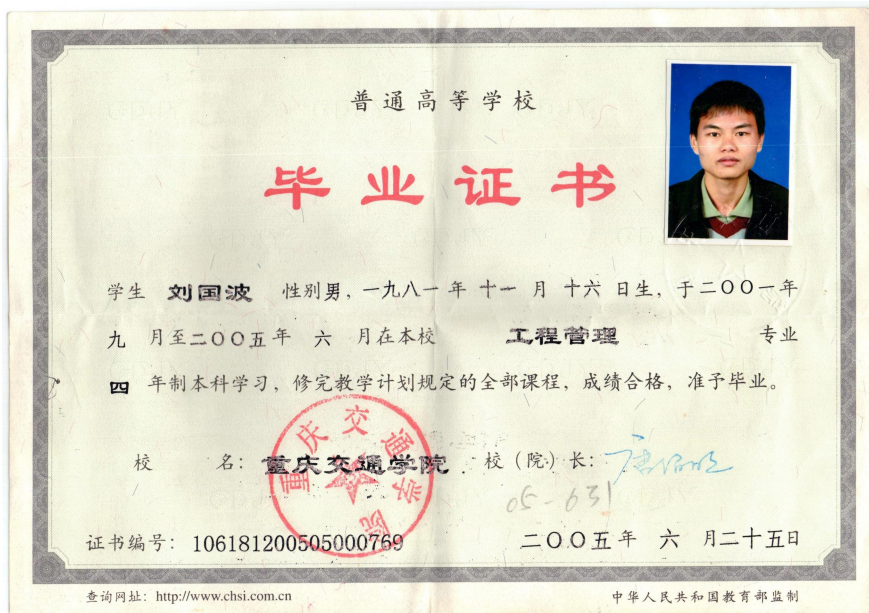 普通高等学校
毕业证书
学生 刘国波 性别男，一九八一年 十一 月 十六 日生，于二〇〇一年
九 月至二〇〇五年 六 月在本校 工程管理 专业
四 年制本科学习，修完教学计划规定的全部课程，成绩合格，准予毕业。
校 名：重庆交通学院 校（院）长：
重庆交通学院
05-631
证书编号：106181200505000769 二〇〇五年 六 月二十五日
查询网址：http://www.chsi.com.cn 中华人民共和国教育部监制